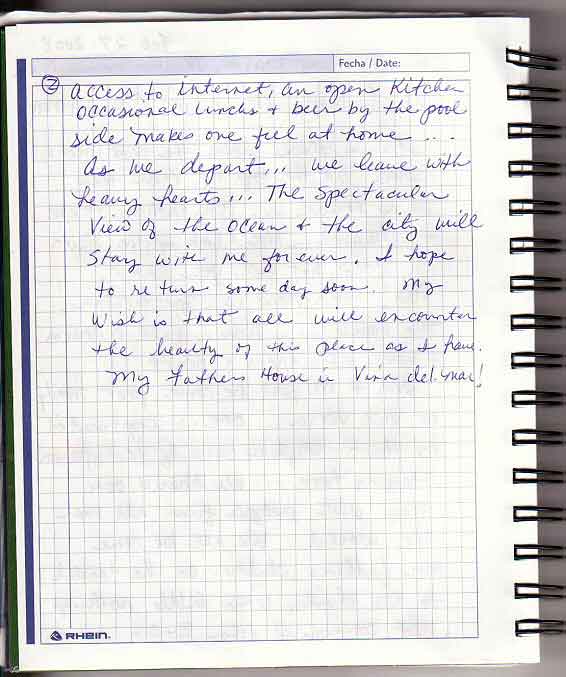 Fecha / Date:
② access to internet, an open kitchen
occasional lunchs + beer by the pool
side makes one feel at home ...
As we depart... we leave with
heavy hearts... The spectacular
View of the ocean + the city will
stay with me forever. I hope
to return some day soon. My
Wish is that all will encounter
the beauty of this place as I have.
My Fathers House in Viña del. mar!
RHEIN.